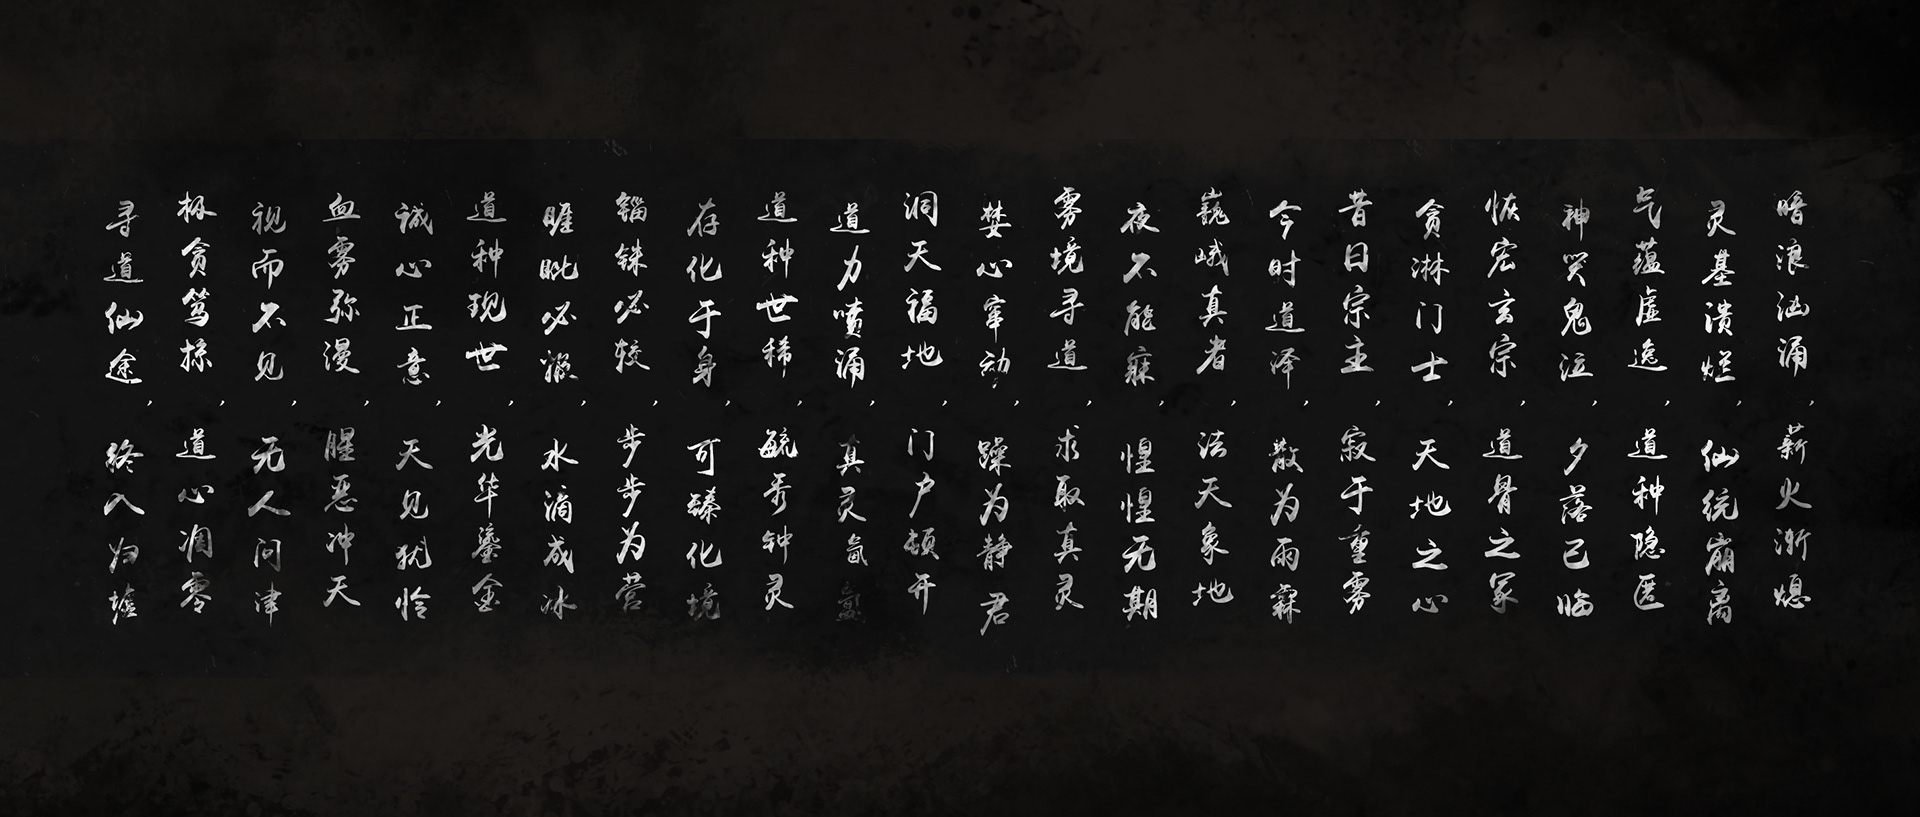 暗浪汹涌，薪火渐熄
灵基溃烂，仙统崩离
气蕴虚逸，道种隐匿
神哭鬼泣，夕落已临
恢宏玄宗，道骨之冢
贪淋门士，天地之心
昔日宗主，寂于重雾
今时道泽，散为雨霖
巍峨真者，法天象地
夜不能寐，惶惶无期
雾境寻道，求取真灵
婪心牵动，躁为静君
洞天福地，门户顿开
道力喷涌，真灵氤氲
道种世稀，毓秀钟灵
存化于身，可臻化境
锱铢必较，步步为营
睚眦必报，水滴成冰
道种现世，光华鎏金
诚心正意，天见犹怜
血雾弥漫，腥恶冲天
视而不见，无人问津
极贪笃掠，道心凋零
寻道仙途，终入归墟